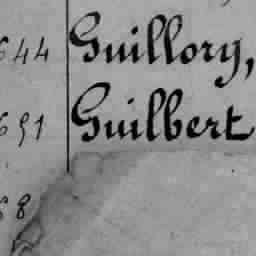 644 Guillory,
691 Guilbert
68